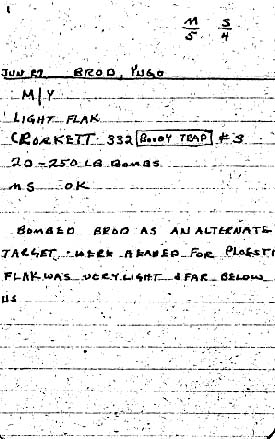 1
M S
5 4
JUN 27 BROD, YUGO
M/Y
LIGHT FLAK
CROCKETT 332 BOOBY TRAP # 3
20-250 LB BOMBS
MS OK
BOMBED BROD AS AN ALTERNATE
TARGET - WERE HEADED FOR PLOESTI
FLAK WAS VERY LIGHT & FAR BELOW
US